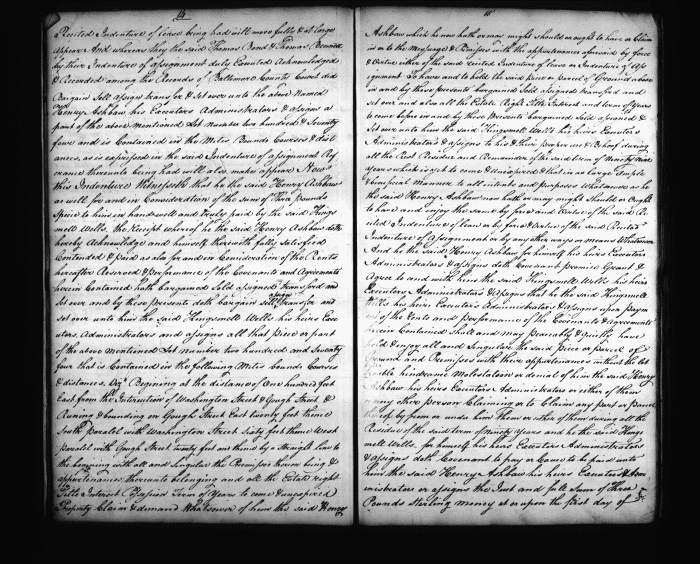 14
Recited Indenture of lease being had will more fully & at large
appear And whereas they the said Thomas Bond & Thomas
by their Indenture of assignment duly Executed Acknowledged
& Recorded among the Records of Baltimore County Court did
Bargain Sell assign transfer & Set over unto the above Named
Henry Ashbaw his Executors Administrators & assigns a
part of the above mentioned Lot Number two hundred & Seventy
four and is Contained in the Mites Bounds Courses & dist
ances, as is expressed in the said Indenture of assignment Ref
erance thereunto being had will also make appear Now
this Indenture Witnesseth that he the said Henry Ashbaw
as well for and in Consideration of the sum of Pounds
Specie to him in hand well and truly paid by the said Kings
mell Wells, the Receipt whereof he the said Henry Ashbaw doth
hereby Acknowledge and himself therewith fully Satisfied
Contented & paid as also for and in Consideration of the Rents
hereafter Reserved & performance of the Covenants and Agreements
herein Contained hath bargained Sold assigned transfered and
Set over and by these presents doth bargain sell assign transfer and
set over unto him the said Kingsmell Wells his heirs Exec
utors, Administrators and assigns all that piece or part
of the above mentioned Lot number two hundred and Seventy
four that is Contained in the following Mites bounds Courses
& distances, Viz Begining at the distance of One hundred feet
East from the Intersection of Washington Street & Gough Street &
Runing & bounding on Gough Street East twenty feet thence
South Paralel with Washington Street Sixty feet thence West
paralel with Gough Street twenty feet and thence by a straight line to
the begening with all and Singular the Premises hereon being &
appertenances thereunto belonging and all the Estate right
Title & Interest Possession Term of Years to come & unexpired
Property Claim & demand Whatsoever of him the said Henry
15
Ashbaw which he now hath or may might should or ought to have or Claim
in or to the Message & Premises with the appertenances aforesaid by force
& Virtue either of the said recited Indenture of lease or Indenture of Ass
ignment To have and to hold the said piece or parcel of Ground above
in and by these presents bargained Sold assigned transfered and
set over and also all the Estate Right Title Interest and term of Years
to come before in and by these presents bargained Sold assigned &
Set over unto him the said Kingsmell Wells his heirs Executors
Administrators & assigns to his & their proper use & Behoof during
all the Rest Residue and Remainder of the said term of Ninety Nine
Years which is yet to come & Unexpired & that in as large Ample
& benificial Manner to all intents and purposes Whatsoever as he
the said Henry Ashbaw now hath or may might Should or Ought
to have and enjoy the same by force and Virtue of the said Re
cited Indenture of lease or by force & Virtue of the said Recited
Indenture of Assignment or by any other ways or means Whatsoever
And he the said Henry Ashbaw for himself his heirs Executors
Administrators & assigns doth Covenant promise Grant &
Agree to and with him the said Kingsmell Wells his heirs
Executors Administrators & Assigns that he the said Kingsmell
Wells his heirs Executors Administrators & assigns upon paym
of the Rents and performance of the Covenants & agreements
herein Contained Shall and may peaceably & quietly have
hold & enjoy all and Singular the said Piece or parcel of
Ground and Premises with their appertenances without the let
hindrance Molestation or denial of him the said Henry
Ashbaw his heirs Executors Administrators or either of them
or any other person Claiming or to Claim any part or parcel
thereof by from or under him Them or either of them during all the
Residue of the said term of Ninety Years and he the said Kings
mell Wells, for himself his heirs Executors Administrators
& assigns doth Covenant to pay or Cause to be paid unto
him the said Henry Ashbaw his heirs Executors Adm
inistrators or assigns the Just and full Sum of Three
Pounds Sterling money at or upon the first day of